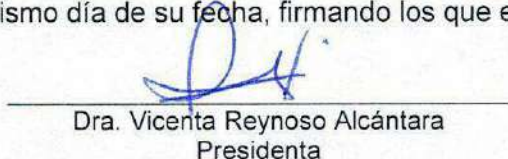 ismo día de su fecha, firmando los que e
Dra. Vicenta Reynoso Alcántara
Presidenta